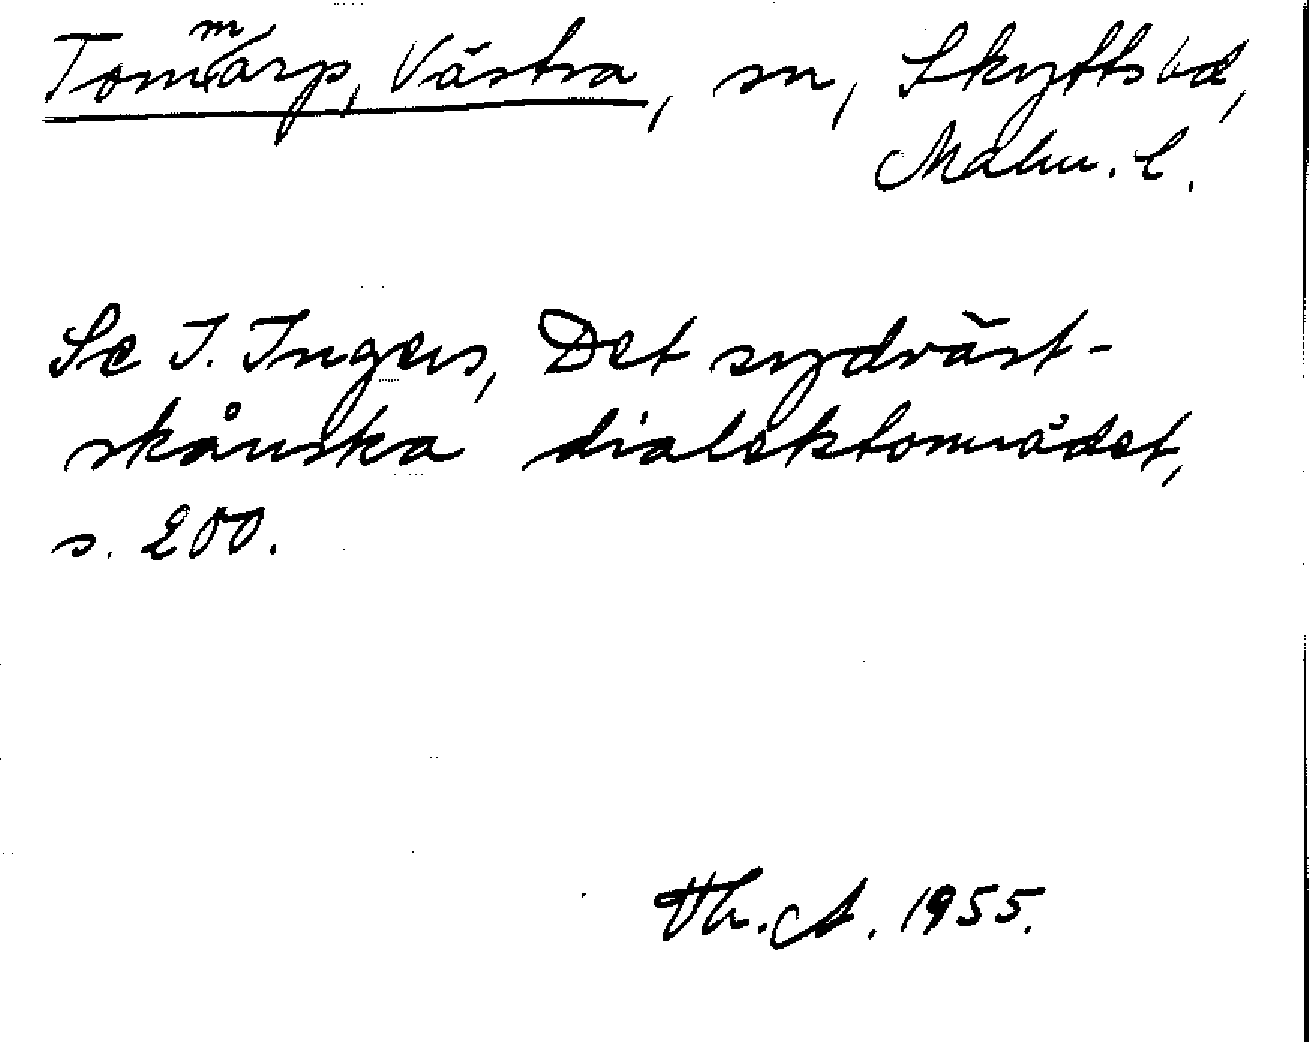 Tommarp, Västra, sn, Skytts hd,
Malm. l.
Se I. Ingers, Det sydväst-
skånska dialektområdet,
s. 200.
Th. A. 1955.